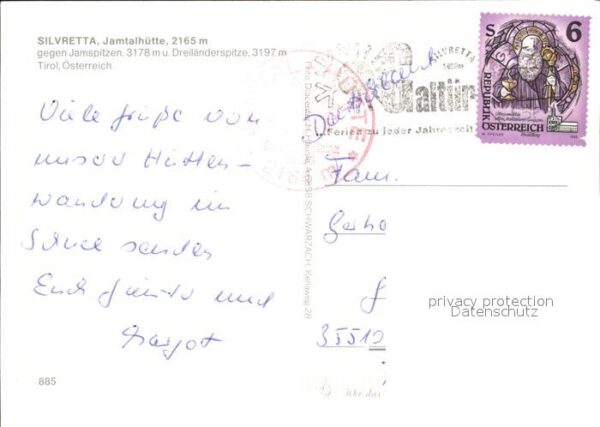 SILVRETTA, Jamtalhütte, 2165 m
gegen Jamspitzen, 3178 m u. Dreiländerspitze, 3197 m
Tirol, Österreich
Viele Grüße von
unserer Hütten-
wanderung im
senden
Euch Günter und
Margot
885
SILVRETTA
Galtür
Ferien zu jeder Jahreszeit
Deutschland
S 6
REPUBLIK
ÖSTERREICH
Fam.
35510
SCHWARZACH
privacy protection
Datenschutz